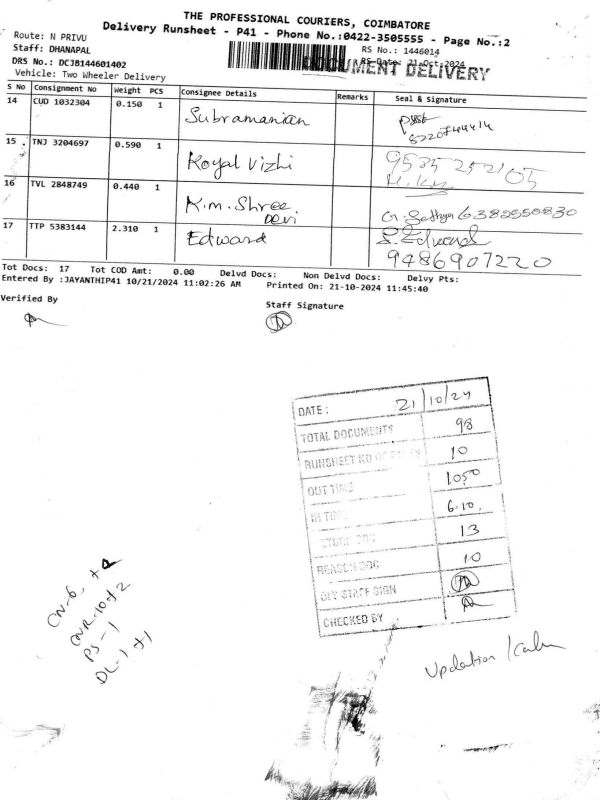 THE PROFESSIONAL COURIERS, COIMBATORE
Delivery Runsheet - P41 - Phone No.:0422-3505555 - Page No.:2
Route: N PRIVU
RS No.: 1446014
Staff: DHANAPAL
RS Date: 21-Oct-2024
DOCUMENT DELIVERY
DRS No.: DCJB144601402
Vehicle: Two Wheeler Delivery
S No Consignment No Weight PCS Consignee Details Remarks Seal & Signature
14 CUD 1032304 0.150 1 Subramanian
15 TNJ 3204697 0.590 1 Royal Vizhi 9535252105
16 TVL 2848749 0.440 1 K.m. Shree Devi G. Sathya 6382550830
17 TTP 5383144 2.310 1 Edward S. Edward
9486907220
Tot Docs: 17 Tot COD Amt: 0.00 Delvd Docs: Non Delvd Docs: Delvy Pts:
Entered By :JAYANTHIP41 10/21/2024 11:02:26 AM Printed On: 21-10-2024 11:45:40
Verified By Staff Signature
DATE : 21/10/24
TOTAL DOCUMENTS 98
RUNSHEET NO OF PAGES 10
OUT TIME 10.50
IN TIME 6.10
13
REASON DOC 10
DLY STAFF SIGN
CHECKED BY
CN-6
CNR-10+2
PS-1
DL-1+1
Updation